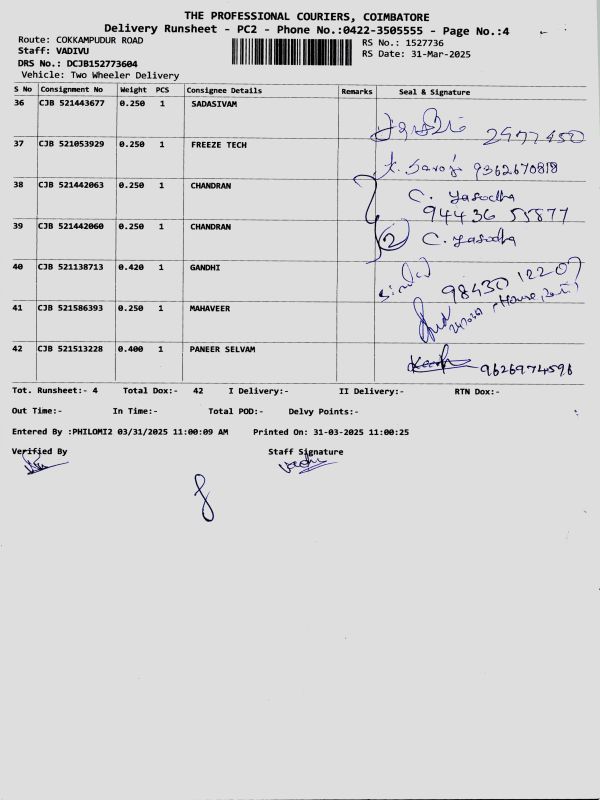 THE PROFESSIONAL COURIERS, COIMBATORE
Delivery Runsheet - PC2 - Phone No.:0422-3505555 - Page No.:4
Route: COKKAMPUDUR ROAD
RS No.: 1527736
Staff: VADIVU
RS Date: 31-Mar-2025
DRS No.: DCJB152773604
Vehicle: Two Wheeler Delivery
S No Consignment No Weight PCS Consignee Details Remarks Seal & Signature
36 CJB 521443677 0.250 1 SADASIVAM
37 CJB 521053929 0.250 1 FREEZE TECH
K. Saroja 9362670818
38 CJB 521442063 0.250 1 CHANDRAN
C. Yasodha
94436 55877
39 CJB 521442060 0.250 1 CHANDRAN
2 C. Yasodha
40 CJB 521138713 0.420 1 GANDHI
98430 12207
41 CJB 521586393 0.250 1 MAHAVEER
42 CJB 521513228 0.400 1 PANEER SELVAM
9626974596
Tot. Runsheet:- 4 Total Dox:- 42 I Delivery:- II Delivery:- RTN Dox:-
Out Time:- In Time:- Total POD:- Delvy Points:-
Entered By :PHILOMI2 03/31/2025 11:00:09 AM Printed On: 31-03-2025 11:00:25
Verified By Staff Signature